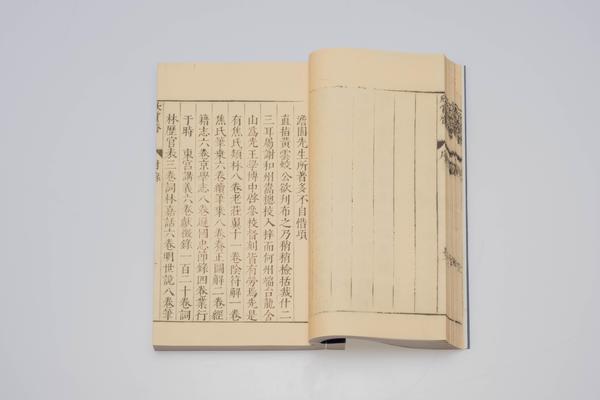 澹園先生所著多不自惜項
直指黃雲蛟公欲列布之乃稍稍檢括裁什二
三耳屬謝和州嘉總校入梓而何州福台龍金
山爲先王學博中啓參校督刻皆有勞焉先是
有焦氏類林八卷老莊翼十一卷陰符解一卷
焦氏筆乘六卷續筆乘八卷養正圖解二卷經
籍志六卷京學志八卷遜國忠節錄四卷業行
于時 東宮講義六卷獻徵錄一百二十卷詞
林歷官表三卷詞林嘉話六卷明世說八卷筆